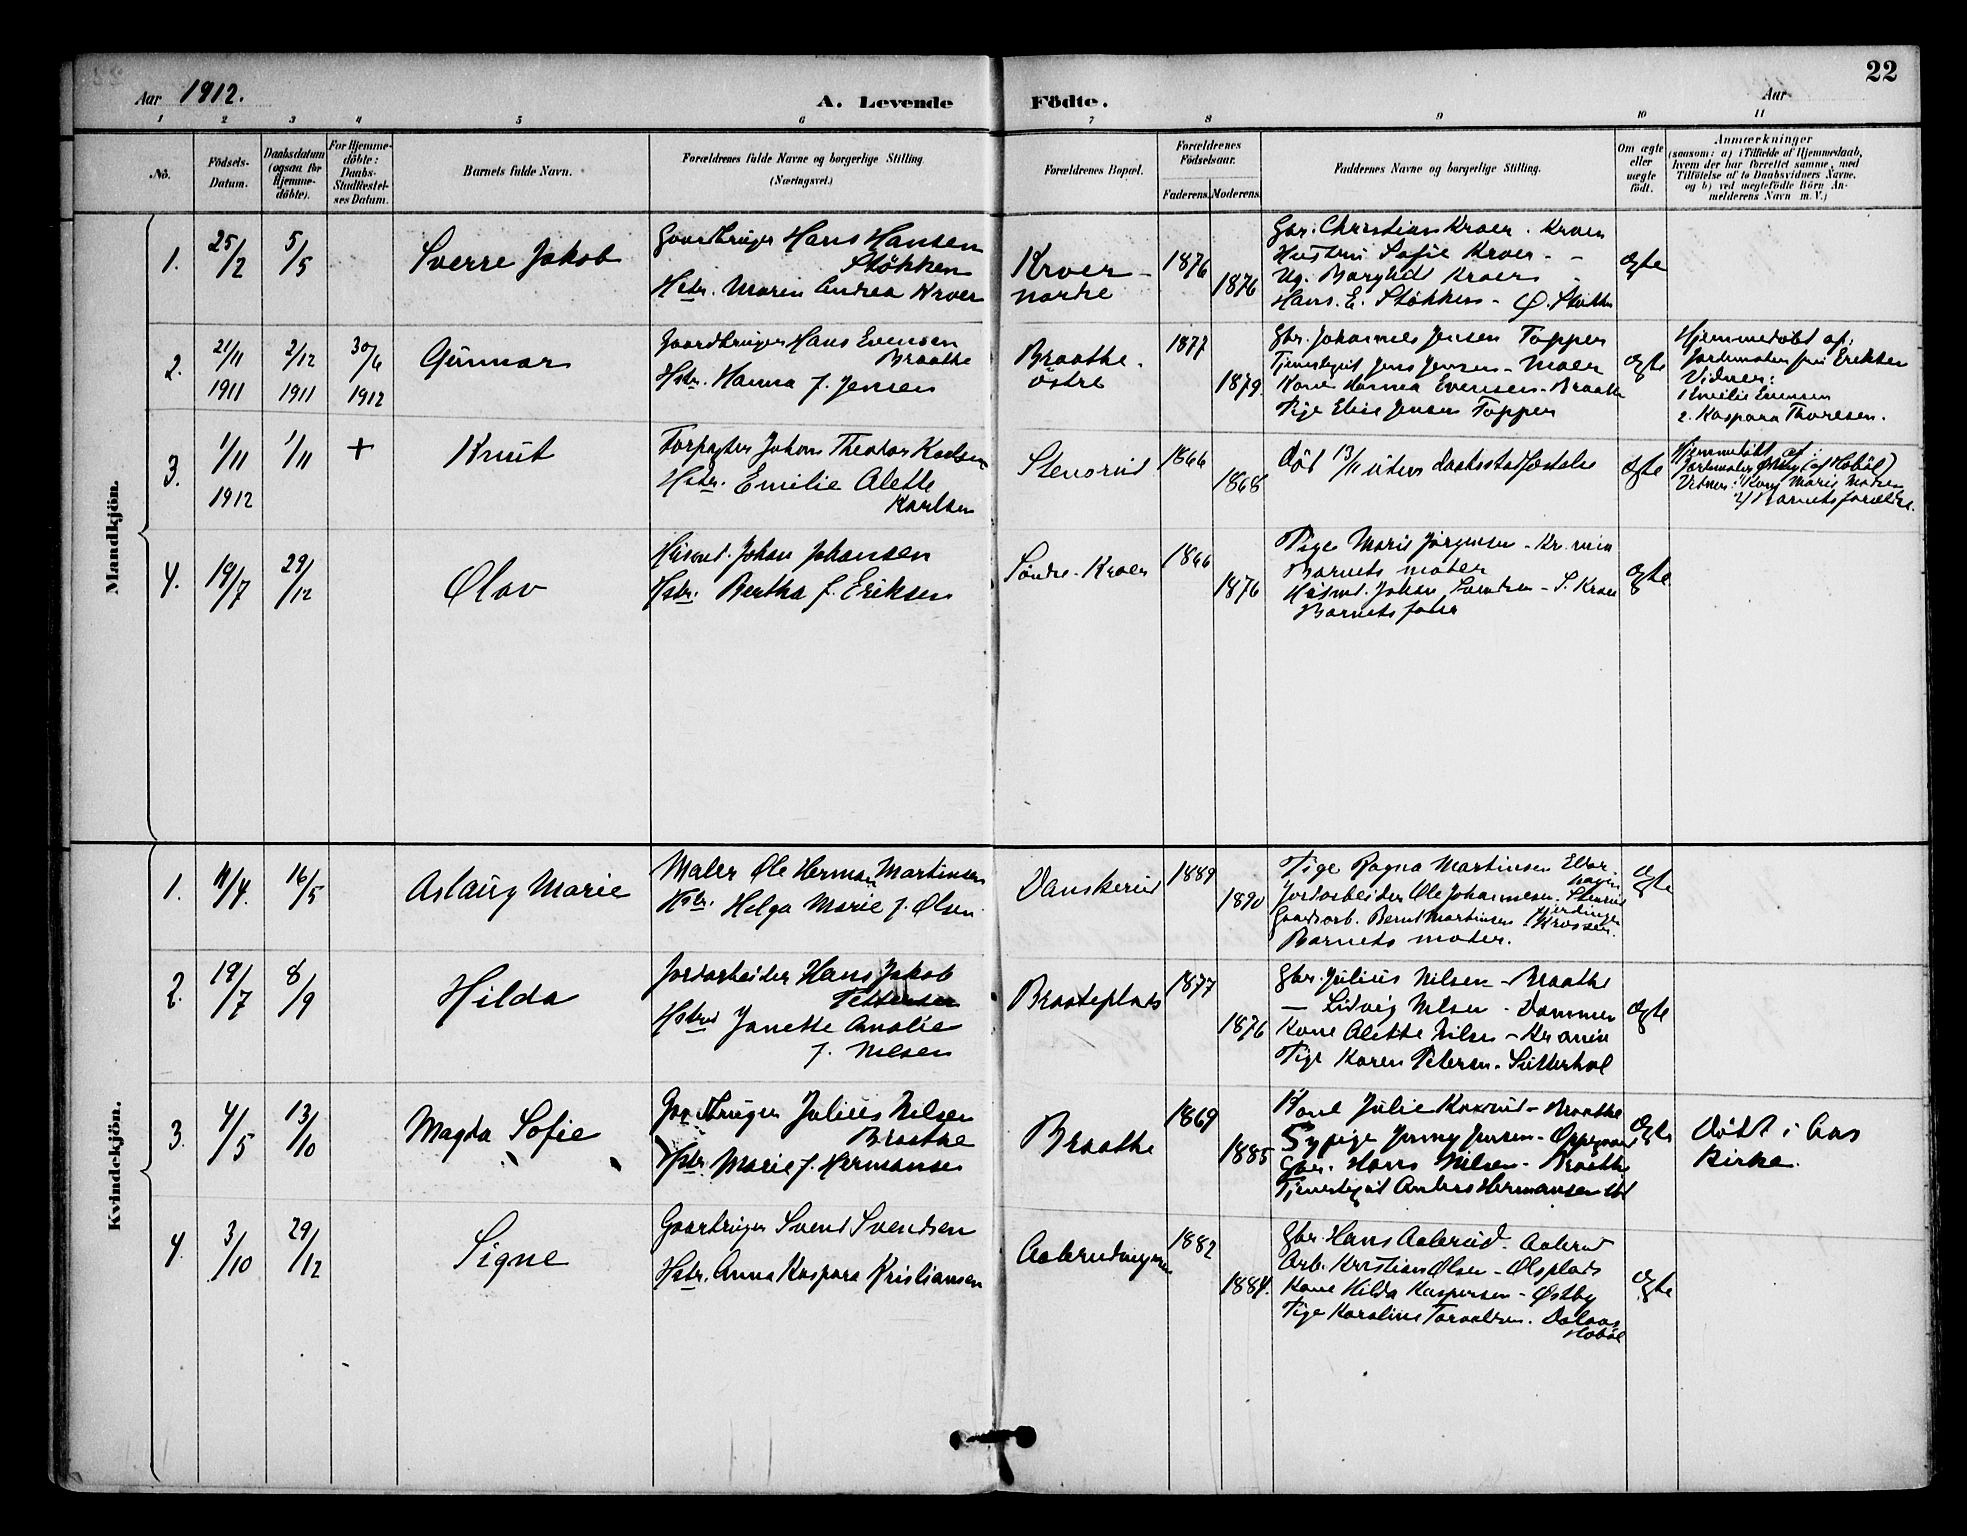 Aar 1912.
A. Levende Födte.
Aar
22
1 2 3 4 5 6 7 8 9 10 11
No.
Födsels-
Datum.
Daabsdatum
(ogsaa for
Hjemme-
döbte).
For Hjemme-
döbte:
Daabs-
Stadfæstel-
ses Datum.
Barnets fulde Navn.
Forældrenes fulde Navne og borgerlige Stilling.
(Næringsvei.)
Forældrenes Bopæl.
Forældrenes
Födselsaar.
Faderens. Moderens.
Faddernes Navne og borgerlige Stilling.
Om ægte
eller
uægte
födt.
Anmærkninger
(saasom: a) i Tilfælde af Hjemmedaab,
hvem der har forrettet samme, med
Tilföielse af to Daabsvidners Navne,
og b) ved uægtefödte Börn An-
melderens Navn m. V.)
Mandkjön.
1.
25/2
5/5
Sverre Jakob
Gaardbruger Hans Hansen
Støkken
Hstr. Maren Andrea Kroer
Kroer -
nordre
1876
1876
Gbr. Christian Kroer. Kroer
Hustru Sofie Kroer - -
Ug. Borghild Kroer -
Hans. E. Støkken - Ø.
ægte
2.
21/11
1911
2/12
1911
30/6
1912
Gunnar
Gaardbruger Hans Evensen
Braathe
Hstr. Hanna f. Jensen
Braathe.
østre
1877
1879.
Gbr. Johannes Jensen Topper
Tjenestegut Jens Jensen - Moer
Kone Hanna Evensen - Braathe
Pige Elise Jensen Topper
ægte
Hjemmedøbt af:
Jordmoder fru Eriksen
Vidner:
1 Emilie Evensen
2. Kaspara Thoresen.
3.
1/11
1912
1/11
+
Knut
Forpagter Johan Theodor Karlsen
Hstr. Emilie Alette
Karlsen
Stenerud
1866
1868
død 13/11 uden daabsstadfæstelse
ægte
Hjemmedøbt af:
Jordmoder (af Hobøl)
Vidner: 1/ Kone Marie Madsen
2/ Barnets forældre.
4.
19/7
29/12
Olav
Husmd. Johan Johansen
Hstr. Bertha f. Eriksen
Søndre - Kroer
1866
1876
Pige Marie Jørgensen - Kr.
Barnets moder
Husmd. Johan Svendsen - S. Kroer
Barnets fader
ægte
Kvindekjön.
1.
11/4.
16/5
Aslaug Marie
Maler Ole Herman Martinsen
Hstr. Helga Marie f. Olsen.
Danskerud
1889
1890
Pige Ragna Martinsen
Jordarbeider Ole Johannesen.
Gaardsarb. Bernt Martinsen
Barnets moder.
ægte
2.
19/7
8/9
Hilda
Jordarbeider Hans Jakob
Pettersen
Hstru Janette Amalie
f. Nilsen
Braateplads
1877
1876
Gbr. Julius Nilsen - Braathe
— Ludvig Nilsen - Dammen
Kone Alette Nilsen -
Pige Karen Petersen - Sutterhol
ægte
3.
4/5
13/10
Magda Sofie
Gaardbruger Julius Nilsen
Braathe
Hstr. Marie f. Hermansen
Braathe
1869
1885
Kone Julie - Braathe
Sypige Jenny Jensen - Oppegaard
Gbr. Hans Nilsen - Braathe
Tjenestegut Anders Hermansen
ægte
Døbt i Aas
Kirke.
4.
3/10
29/12
Signe
Gaardbruger Svend Svendsen
Hstr. Anna Kaspara Kristiansen
1882
1884.
Gbr. Hans Aaberud. Aaberud
Arb. Kristian Olsen - Olsplads
Kone Hilda Kaspersen - Østby
Pige Karoline
Hobøl
ægte